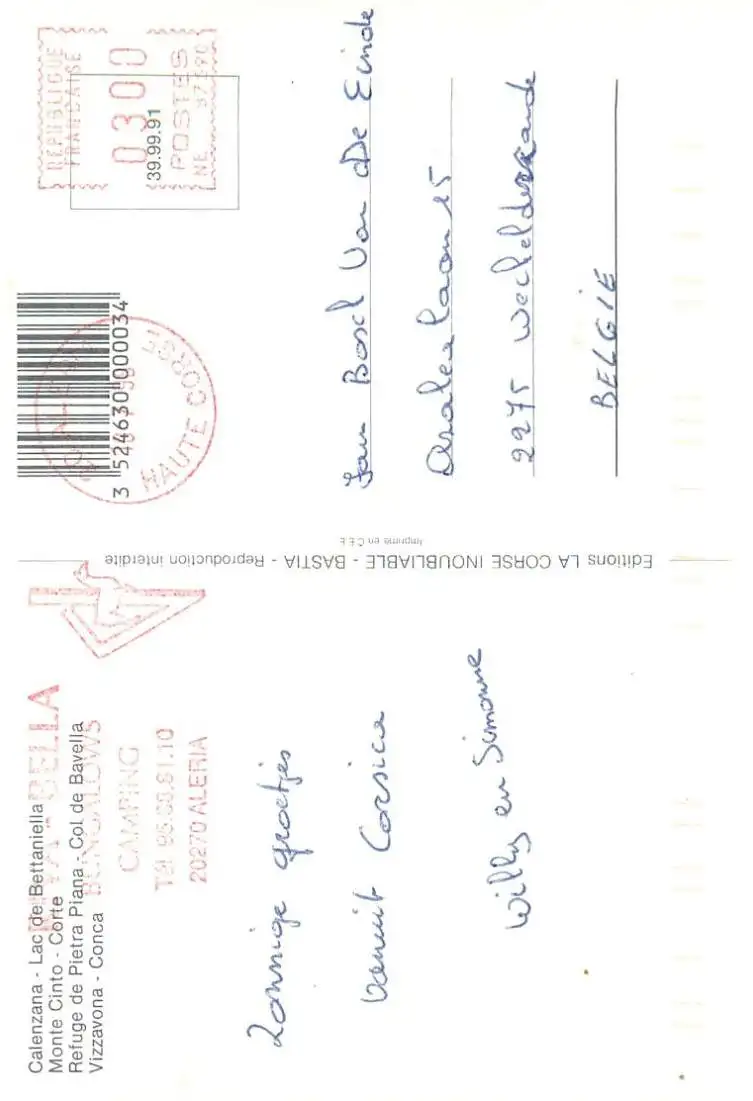 Calenzana - Lac de Bettaniella
Monte Cinto - Corte
Refuge de Pietra Piana - Col de Bavella
Vizzavona - Conca
BELLA
BUNGALOWS
CAMPING
20270 ALERIA
Zonnige groetjes
vanuit Corsica
Willy en Simonne
Editions LA CORSE INOUBLIABLE - BASTIA - Reproduction interdite
Imprimé en C.E.E.
3 524630 000034
HAUTE CORSE
REPUBLIQUE
FRANCAISE
0300
39.99.91
POSTES
Jan Bosch Van De Einde
Azalealaan 15
2275 Wechelderzande
BELGIE